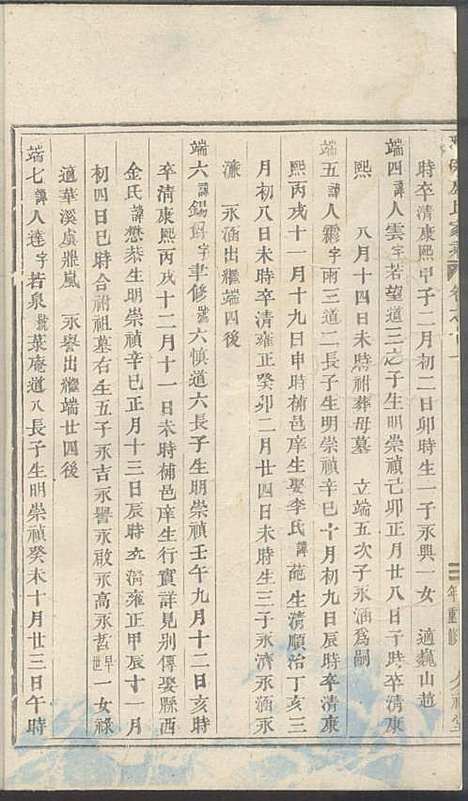 時卒清康熙甲子二月初二日卯時生一子永興一女 適巍山趙
端四諱人雲字若望道三之子生明崇禎己卯正月廿八日子時卒清康
熙 八月十四日未時祔葬母墓 立端五次子永涵為嗣
端五諱人霨字雨三道二長子生明崇禎辛巳十月初九日辰時卒清康
熙丙戌十一月十九日申時補邑庠生娶李氏諱葩生清順治丁亥三
月初八日未時卒清雍正癸卯二月廿四日未時生三子永濟永涵永
濂 永涵出繼端四後
端六諱錫 字聿修號六慎道六長子生明崇禎壬午九月十二日亥時
卒清康熙丙戌十二月十一日未時補邑庠生行實詳見別傳娶縣西
金氏諱懋恭生明崇禎辛巳正月十三日辰時卒清雍正甲辰十一月
初四日巳時合祔祖墓右生五子永吉永譽永啟永高永哲早世一女祿
適華溪虞鼎嵐 永譽出繼端廿四後
端七諱人達字若泉號葵庵道八長子生明崇禎癸未十月廿三日午時